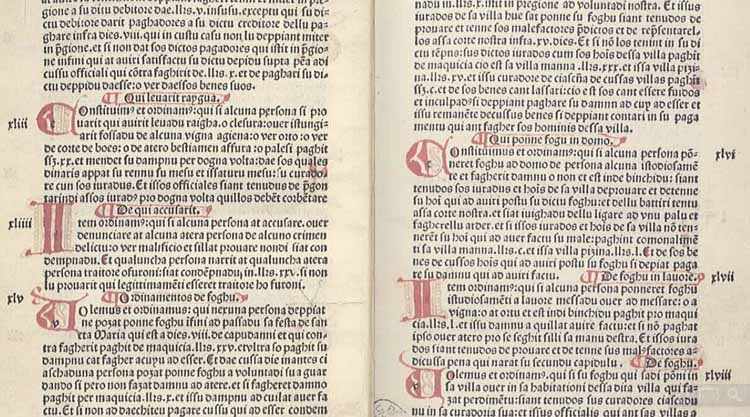 gione a su dictu debitore dae .llꝫ. v. insusu. exceptu qui su di
ctu debitore darit paghadores a su dictu creditore dellu pa
ghare infra dies. viii. qui in custu casu non lu deppiant miter
in p̄gione. et si non dat sos dictos pagadores qui istit in p̄gio
ne infini qui at auiri satisfactu su dictu depidu supta pēa ad
cussu officiali qui cōtra faghirit de .llꝫ. x. et de paghari su di
ctu deppidu daesse: o ver daessos benes suos.
Qui leuarit raygua.
xliii
Constituimꝰ et ordinamꝰ: qui si alcuna persona si pro
uarit qui aurit leuadu raigha. o clesura: ouer istungi
arit fossadu de alcuna vigna agiena: o ver orto: o ver
de corte de boes: o de atero bestiamen affura: o palesi paghit
sꝫ. xx. et mendet su dampnu per dogna volta: dae sos quales
dinaris appat su rennu su mesu et issaturu mesu: su curado
re cun sos iuradus. Et issos officiales siant tenudus de p̄gon
tari indi assos iuradꝫ pro dogna volta quillos debēt corbetare
De qui accusarit.
xliiii
Item ordinamꝰ: qui si alcuna persona at accusare. ouer
denunciare at alcuna atera persona de alcuno crimen
delictu: o ver malificio et sillat prouare nondi siat con
dempnadu. Et qualuncha persona narrit at qualuncha atera
persona traitore o furoni: siat condēpnadu in .llꝫ. xxv. si non
lu prouarit qui legittimamēti esseret traitore ho furoni.
Ordinamentos de foghu.
xlv
Volemus et ordinamus: qui neruna persona deppiat
ne pozat ponne foghu ifini ad passadu sa festa de san
cta Maria qui est a dies. viii. de capudanni et qui con
tra faghirit paghit de maquicia .llꝫ. xxv. et vltra so paghit su
dampnu cat fagher acupu ad esser. Et dae cussa die inantes ci
aschaduna persona pozat ponne foghu a voluntadi sua guar
dando si pero non fazat damnu ad atere. et si fagheret damno
paghit per maquicia .llꝫ. x. et issu damnu ad cui lat auer fa
ctu. Et si non ad dacchiteu pagare cussu qui ad esser conden
nadu in .llꝫ. x. istit in p̄gione ad voluntadi nostra. Et issus
iurados de sa villa hue sat ponne su foghu siant tenudos de
prouare et tenne sos malefactores p̄dictos et de rep̄sentarel
los assa corte nostra infra .xv. dies. Et si nō los tenint in su di
ctu tēpns: sus dictos iurados cum sos hoīs dessa villa paghit
de maquicia cio est sa villa manna .llꝫ. xxx. et issa villa pizīa
na. llꝫ. xv. et issu curadore de ciascūa de cussas villas paghit
sꝫ. c. et de sos benes cant lassari: cio est sos cant essere fuidos
et inculpadꝫ si deppiant paghare su damnu ad cup ad esser et
issu remanēte decussus benes si deppiant contari in su paga
mentu qui ant fagher sos hominis dessa villa.
Qui ponne fogu in domo.
xlvi
Constituimus et ordinamꝰ: qui si alcuna persona pō
neret foghu ad domo de persona alcuna istodiosamē
te et fagherit damnu o non et est inde binchidu: siant
tenudos sos iuradus et hoīs de sa villa deprouare et detenne
su hoī qui ad auiri postu su dictu foghu: et dellu battiri tentu
assa corte nostra. et siat iuighadu dellu ligare ad vnu palu et
fagherellu arder. et si issos iurados et hoīs de sa villa nō ten
nerēt su hoī qui ad auer factu su male: paghint comonalimē
ti sa villa manna .llꝫ. c. et issa villa pizīna .llꝫ. l. Et de sos be
nes de cussos hoīs qui ad auiri postu su foghu si depiat paga
re su damnu qui ad auiri factu.
De foghu in lauore.
xlvii
Item ordinamꝰ: qui si alcuna persona ponneret foghu
istudiosamēti a lauore messadu ouer ad messare: o a
vigna: o at ortu et est indi binchidu paghit pro maqui
cia. llꝫ. l. et issu damnu a quillat auirit factu: et si nō paghat
ipso ouer atero pro se seghit silli sa manu destra. Et issos iura
dos siant tenudos de prouare et de tenne sus malefactores a
dicussa pena qui narat su secundu capidulu.
De foghu.
xlviii
Volemus et ordinamꝰ. si su foghu qui sadi pōni in
sa villa ouer in sa habitationi dessa dita villa qui fa
zat perdimētu: siant tenudos sos iurados cussos qui
sunt in sa curadoria sua: et issus officialis qui ant ss sos villas